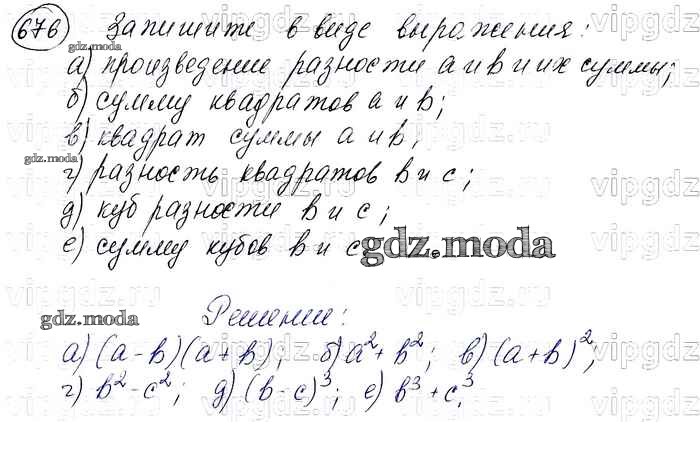 676 Запишите в виде выражения:
а) произведение разности a и b и их суммы;
б) сумму квадратов a и b;
в) квадрат суммы a и b;
г) разность квадратов b и c;
д) куб разности b и c;
е) сумму кубов b и c
Решение:
а) (a-b)(a+b); б) a²+b²; в) (a+b)²;
г) b²-c²; д) (b-c)³; е) b³+c³.